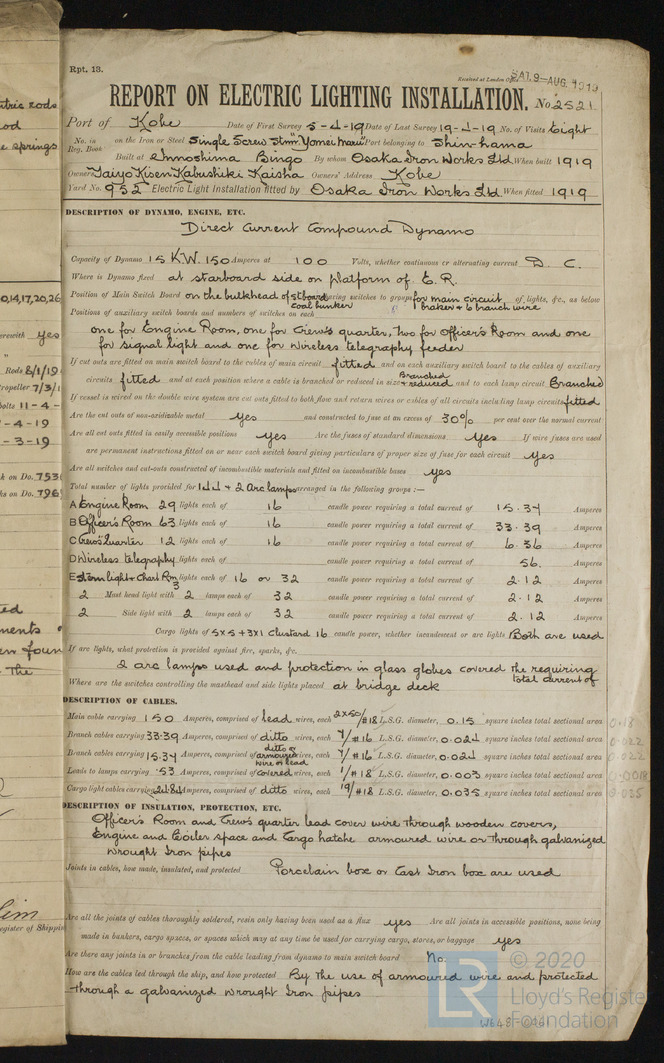 Rpt. 13.
Received at London Office SAT. 9 - AUG. 1919
REPORT ON ELECTRIC LIGHTING INSTALLATION. No 2521
Port of Kobe Date of First Survey 5-4-19 Date of Last Survey 19-4-19 No. of Visits Eight
No. in Reg. Book on the Iron or Steel Single Screw Stmr "Yomei Maru" Port belonging to Shin-hama
Built at Innoshima Bingo By whom Osaka Iron Works Ltd. When built 1919
Owners Taiyo Kisen Kabushiki Kaisha Owners' Address Kobe
Yard No. 952 Electric Light Installation fitted by Osaka Iron Works Ltd. When fitted 1919
DESCRIPTION OF DYNAMO, ENGINE, ETC.
Direct Current Compound Dynamo
Capacity of Dynamo 15 K.W. 150 Amperes at 100 Volts, whether continuous or alternating current D. C.
Where is Dynamo fixed at starboard side on platform of E. R.
Position of Main Switch Board on the bulkhead of stboard coal bunker having switches to groups for main circuit breaker & 6 branch wire of lights, &c., as below
Positions of auxiliary switch boards and numbers of switches on each
one for Engine Room, one for Crew's quarter, two for Officer's Room and one
for signal light and one for wireless telegraphy feeder
If cut outs are fitted on main switch board to the cables of main circuit fitted and on each auxiliary switch board to the cables of auxiliary
circuits fitted and at each position where a cable is branched or reduced in size Branched & reduced and to each lamp circuit Branched
If vessel is wired on the double wire system are cut outs fitted to both flow and return wires or cables of all circuits including lamp circuits fitted
Are the cut outs of non-oxidizable metal yes and constructed to fuse at an excess of 30% per cent over the normal current
Are all cut outs fitted in easily accessible positions yes Are the fuses of standard dimensions yes If wire fuses are used
are permanent instructions fitted on or near each switch board giving particulars of proper size of fuse for each circuit yes
Are all switches and cut-outs constructed of incombustible materials and fitted on incombustible bases yes
Total number of lights provided for 144 + 2 arc lamps arranged in the following groups :—
A Engine Room 29 lights each of 16 candle power requiring a total current of 15.34 Amperes
B Officer's Room 63 lights each of 16 candle power requiring a total current of 33.39 Amperes
C Crew's Quarter 12 lights each of 16 candle power requiring a total current of 6.36 Amperes
D Wireless telegraphy lights each of candle power requiring a total current of 56. Amperes
E Stern light & Chart Rm 3 lights each of 16 or 32 candle power requiring a total current of 2.12 Amperes
2 Mast head light with 2 lamps each of 32 candle power requiring a total current of 2.12 Amperes
2 Side light with 2 lamps each of 32 candle power requiring a total current of 2.12 Amperes
Cargo lights of 5x5+3x1 clustard 16 candle power, whether incandescent or arc lights Both are used
If arc lights, what protection is provided against fire, sparks, &c.
2 arc lamps used and protection in glass globes covered the requiring total current of
Where are the switches controlling the masthead and side lights placed at bridge deck
DESCRIPTION OF CABLES.
Main cable carrying 150 Amperes, comprised of lead wires, each 2x50/#18 L.S.G. diameter, 0.15 square inches total sectional area 0.18
Branch cables carrying 33.39 Amperes, comprised of ditto wires, each 7/#16 L.S.G. diameter, 0.024 square inches total sectional area 0.022
Branch cables carrying 15.34 Amperes, comprised of ditto or armoured wires, each 7/#16 L.S.G. diameter, 0.024 square inches total sectional area 0.022
Leads to lamps carrying .53 Amperes, comprised of wire or lead covered wires, each 1/#18 L.S.G. diameter, 0.003 square inches total sectional area
Cargo light cables carrying Amperes, comprised of ditto wires, each 19/#18 L.S.G. diameter, 0.035 square inches total sectional area 0.035
DESCRIPTION OF INSULATION, PROTECTION, ETC.
Officer's Room and Crew's quarter lead cover wire through wooden covers,
Engine and Boiler space and Cargo hatche armoured wire or through galvanized
wrought Iron pipes
Joints in cables, how made, insulated, and protected Porcelain box or Cast Iron box are used
Are all the joints of cables thoroughly soldered, resin only having been used as a flux yes Are all joints in accessible positions, none being
made in bunkers, cargo spaces, or spaces which may at any time be used for carrying cargo, stores, or baggage yes
Are there any joints in or branches from the cable leading from dynamo to main switch board No.
How are the cables led through the ship, and how protected By the use of armoured wire and protected
through a galvanized wrought Iron pipes
LR © 2020
Lloyd's Register
Foundation